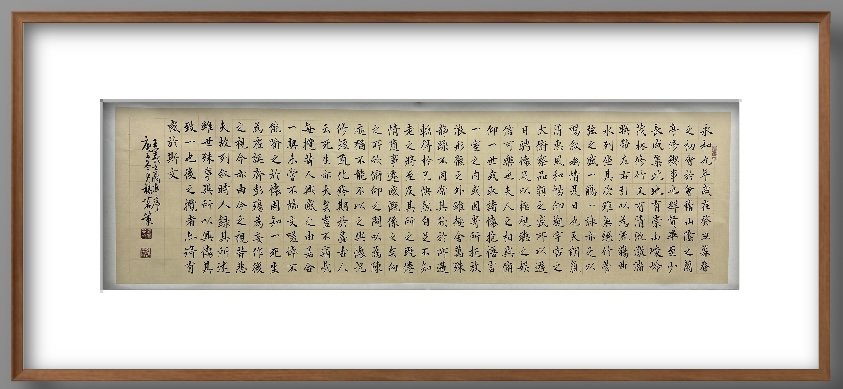 永和九年歲在癸丑暮春
之初會於會稽山陰之蘭
亭修禊事也群賢畢至少
長咸集此地有崇山峻嶺
茂林修竹又有清流激湍
映帶左右引以為流觴曲
水列坐其次雖無絲竹管
弦之盛一觴一詠亦足以
暢敘幽情是日也天朗氣
清惠風和暢仰觀宇宙之
大俯察品類之盛所以遊
目騁懷足以極視聽之娛
信可樂也夫人之相與俯
仰一世或取諸懷抱悟言
一室之內或因寄所託放
浪形骸之外雖趣舍萬殊
靜躁不同當其欣於所遇
暫得於己快然自足不知
老之將至及其所之既倦
情隨事遷感慨係之矣向
之所欣俯仰之間以為陳
迹猶不能不以之興懷況
修短隨化終期於盡古人
云死生亦大矣豈不痛哉
每攬昔人興感之由若合
一契未嘗不臨文嗟悼不
能喻之於懷固知一死生
為虛誕齊彭殤為妄作後
之視今亦由今之視昔悲
夫故列敘時人錄其所述
雖世殊事異所以興懷其
致一也後之攬者亦將有
感於斯文
王羲之蘭亭序